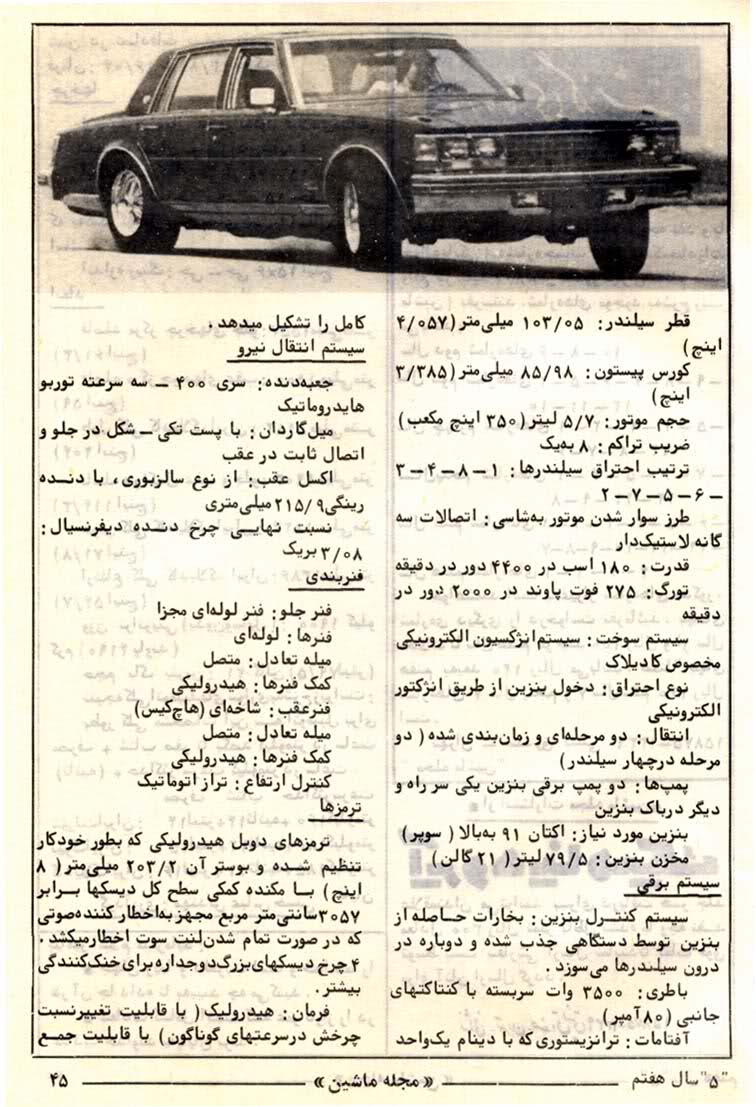 قطر سیلندر: ۱۰۳/۰۵ میلی‌متر (۴/۰۵۷
اینچ)
کورس پیستون: ۸۵/۹۸ میلی‌متر (۳/۳۸۵
اینچ)
حجم موتور: ۵/۷ لیتر (۳۵۰ اینچ مکعب)
ضریب تراکم: ۸ به‌یک
ترتیب احتراق سیلندرها: ۱ – ۸ – ۴ – ۳
– ۶ – ۵ – ۷ – ۲
طرز سوار شدن موتور به‌شاسی: اتصالات سه
گانه لاستیک‌دار
قدرت: ۱۸۰ اسب در ۴۴۰۰ دور در دقیقه
تورگ: ۲۷۵ فوت پاوند در ۲۰۰۰ دور در
دقیقه
سیستم سوخت: سیستم انژکسیون الکترونیکی
مخصوص کادیلاک
نوع احتراق: دخول بنزین از طریق انژکتور
الکترونیکی
انتقال: دو مرحله‌ای و زمان‌بندی شده (دو
مرحله درچهار سیلندر)
پمپ‌ها: دو پمپ برقی بنزین یکی سر راه و
دیگر درباک بنزین
بنزین مورد نیاز: اکتان ۹۱ به‌بالا (سوپر)
مخزن بنزین: ۷۹/۵ لیتر (۲۱ گالن)
سیستم برقی
سیستم کنترل بنزین: بخارات حاصله از
بنزین توسط دستگاهی جذب شده و دوباره در
درون سیلندرها می‌سوزد.
باطری: ۳۵۰۰ وات سربسته با کنتاکتهای
جانبی (۸۰ آمپر)
آفتامات: ترانزیستوری که با دینام یک‌واحد
کامل را تشکیل میدهد.
سیستم انتقال نیرو
جعبه‌دنده: سری ۴۰۰ – سه سرعته توربو
هایدروماتیک
میل‌گاردان: با پست تکی – شکل در جلو و
اتصال ثابت در عقب
اکسل عقب: از نوع سالزبوری، با دنده
رینگی ۲۱۵/۹ میلی‌متری
نسبت نهایی چرخ دنده دیفرنسیال:
۳/۰۸ بریک
فنربندی
فنر جلو: فنر لوله‌ای مجزا
فنرها: لوله‌ای
میله تعادل: متصل
کمک فنرها: هیدرولیکی
فنرعقب: شاخه‌ای (هاچ‌کیس)
میله تعادل: متصل
کمک فنرها: هیدرولیکی
کنترل ارتفاع: تراز اتوماتیک
ترمزها
ترمزهای دوبل هیدرولیکی که بطور خودکار
تنظیم شده و بوستر آن ۲۰۳/۲ میلی‌متر (۸
اینچ) با مکنده کمکی سطح کل دیسکها برابر
۳۰۵۷ سانتی‌متر مربع مجهز به‌اخطار کننده‌صوتی
که در صورت تمام شدن‌لنت سوت اخطارمیکشد.
۴ چرخ دیسکهای بزرگ دوجداره برای خنک‌کنندگی
بیشتر.
فرمان: هیدرولیک (با قابلیت تغییرنسبت
چرخش درسرعتهای گوناگون) با قابلیت جمع
"۵" سال هفتم
«مجله ماشین»
۴۵